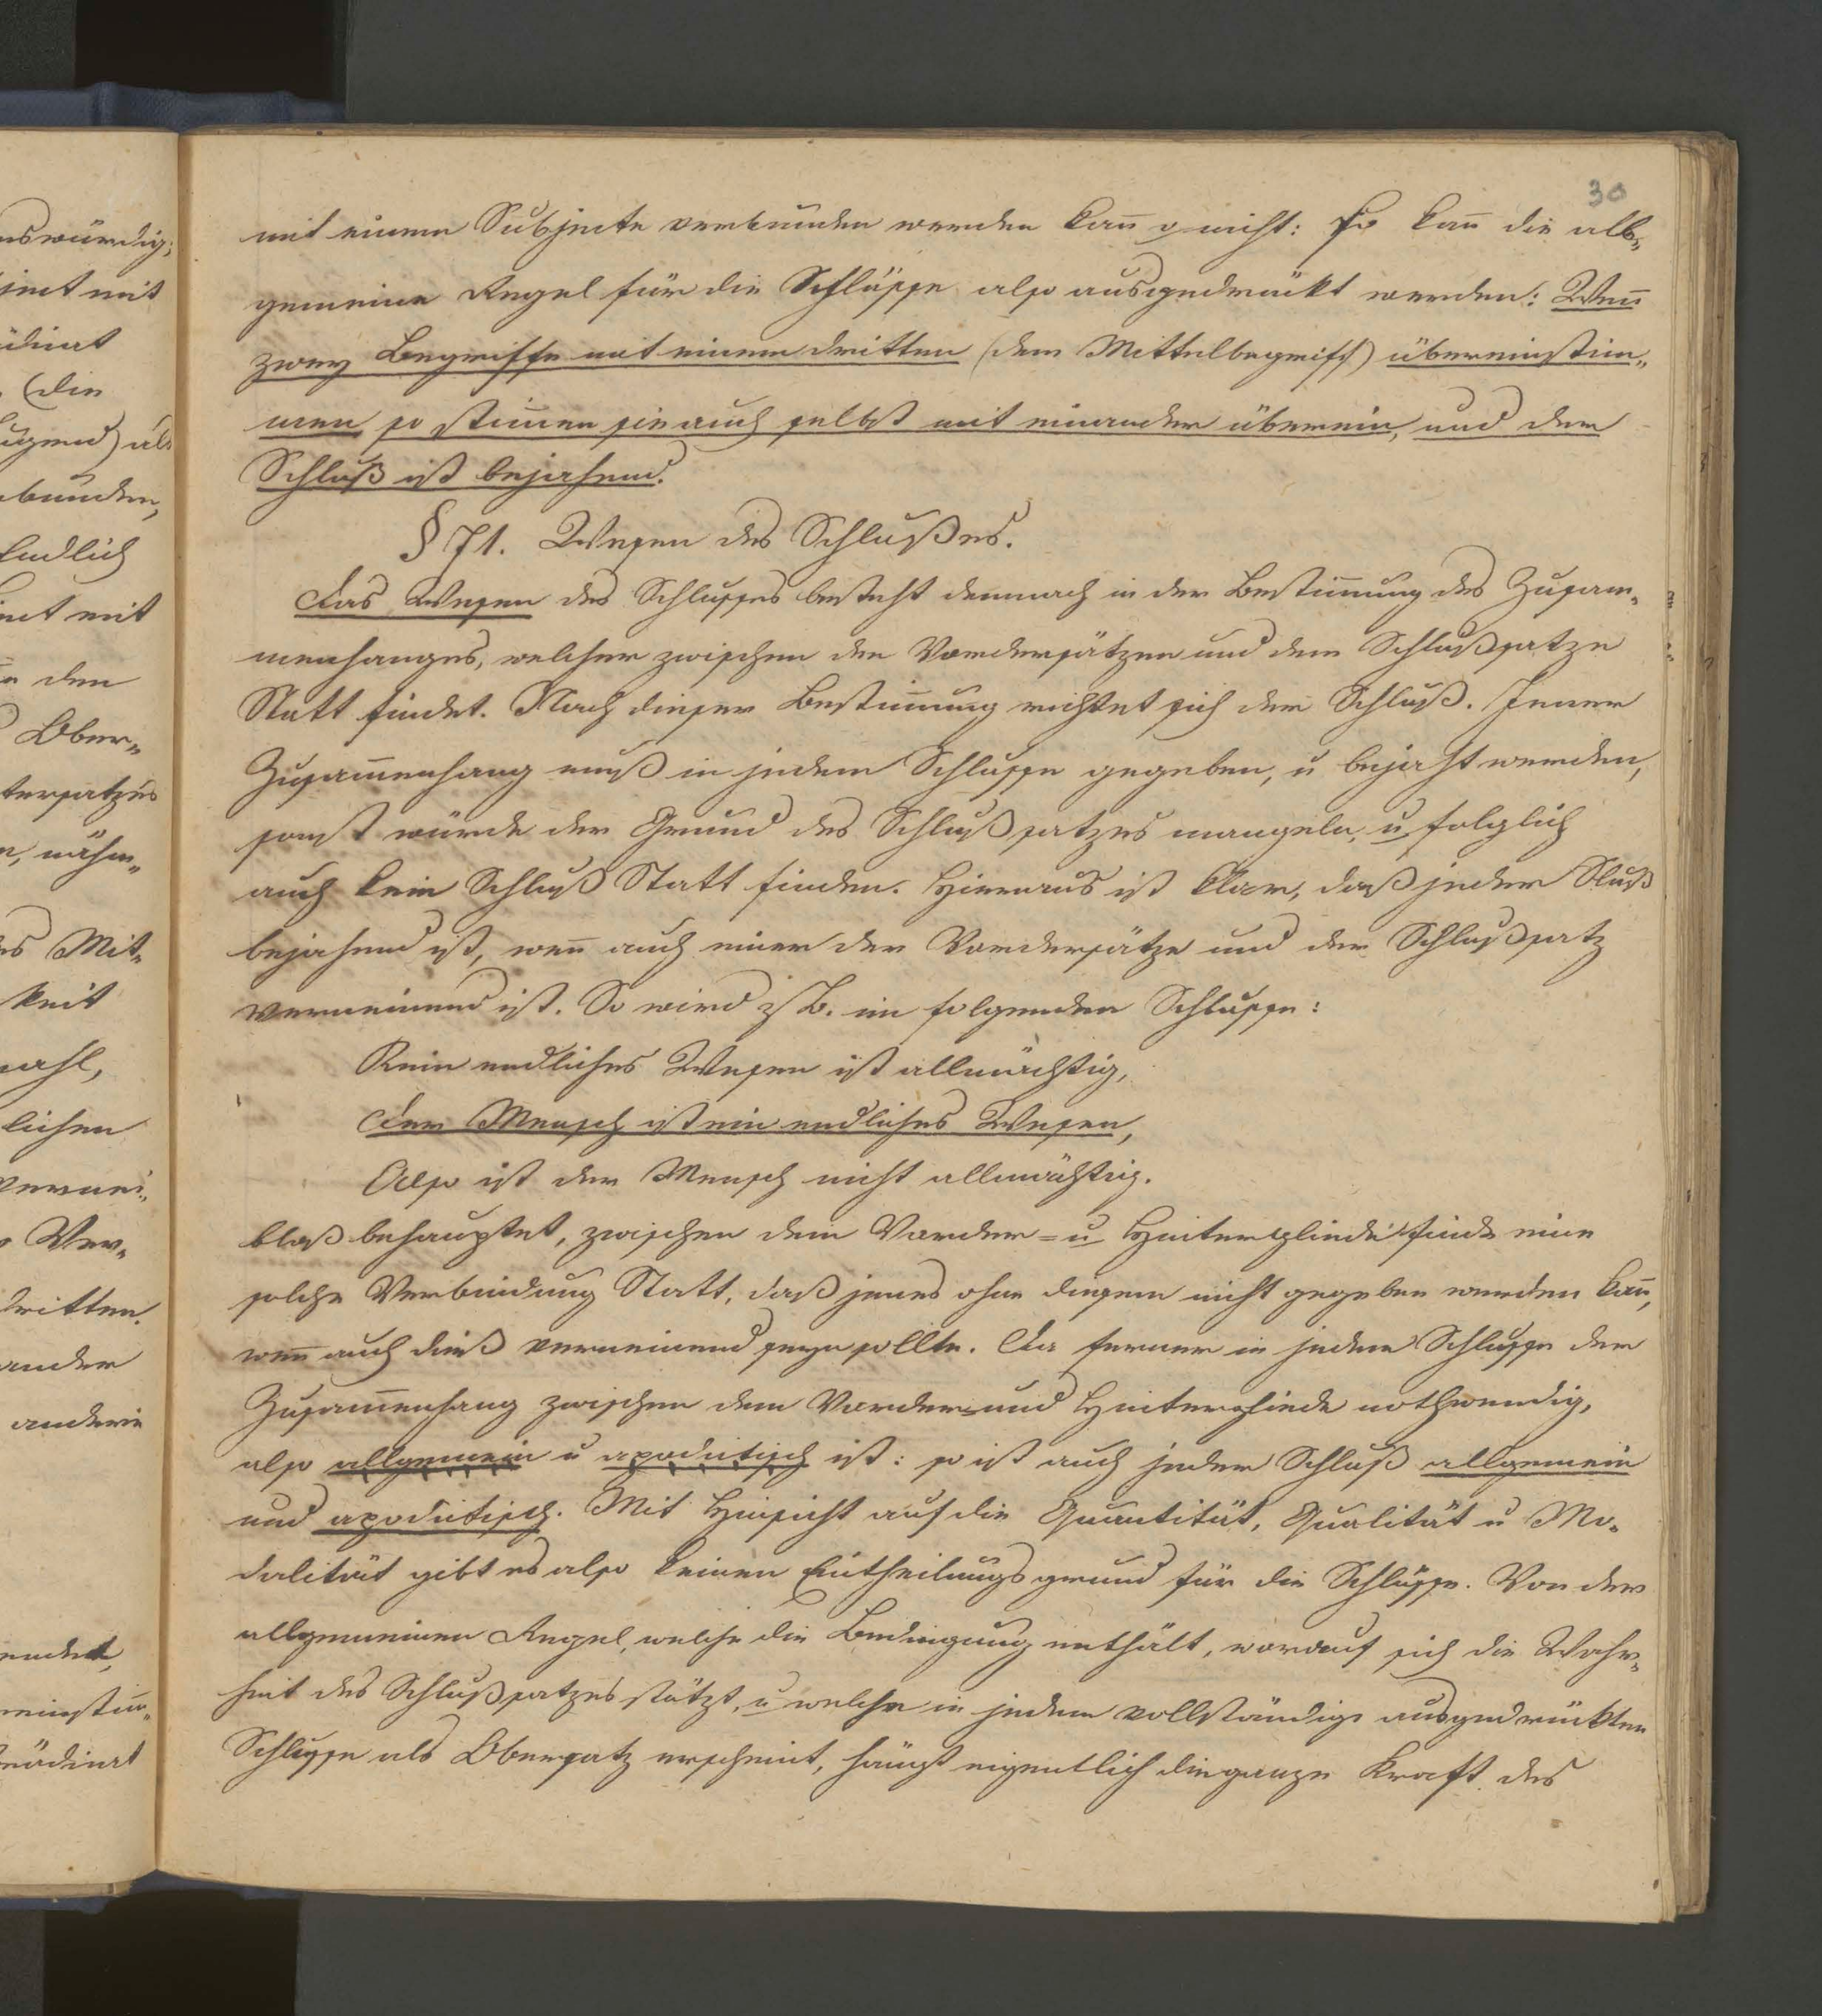 30
mit einem Subjecte verbunden werden kan̅ o. nicht: so kan̅ die all-
gemeine Regel für die Schlüsse also ausgedrückt werden: Wen̅
zwey Begriffe mit einem dritten (dem Mittelbegriff) übereinstim-
men so stim̅en sie auch selbst mit einander überein, und der
Schluß ist bejahend.
§ 71. Wesen des Schlußes.
Das Wesen des Schlusses besteht demnach in der Bestim̅ung des Zusam-
menhanges, welcher zwischen den Vordersätzen und dem Schlußsatze
Statt findet. Nach dieser Bestim̅ung richtet sich der Schluß. Jener
Zusam̅enhang muß in jedem Schlusse gegeben, u bejaht werden,
sonst würde der Grund des Schlußsatzes mangeln, u folglich
auch kein Schluß Statt finden. Hieraus ist klar, daß jeder Sluß
bejahend ist, wen̅ auch einer der Vordersätze und der Schlußsatz
verneinend ist. So wird z B. im folgenden Schlusse:
Kein endliches Wesen ist allmächtig,
Der Mensch ist ein endliches Wesen,
Also ist der Mensch nicht allmächtig.
bloß behauptet, zwischen dem Vorder- u Hintergliede finde eine
solche Verbindung Statt, daß jenes ohne diesem nicht gegeben werden kan̅,
wen̅ auch dieß verneinend seyn sollte. Da ferner in jedem Schlusse der
Zusam̅enhang zwischen dem Vorder- und Hintergliede nothwendig,
also allgemein u apodictisch ist: so ist auch jeder Schluß allgemein
und apodictisch. Mit Hinsicht auf die Quantität, Qualität u Mo-
dalität gibt es also keinen Eintheilungsgrund für die Schlüsse. Von der
allgemeinen Regel, welche die Bedingung enthält, worauf sich die Wahr-
heit des Schlußsatzes stützt, u welche in jedem vollständig ausgedrückten
Schlusse als Obersatz erscheint, hängt eigentlich die ganze Kraft des